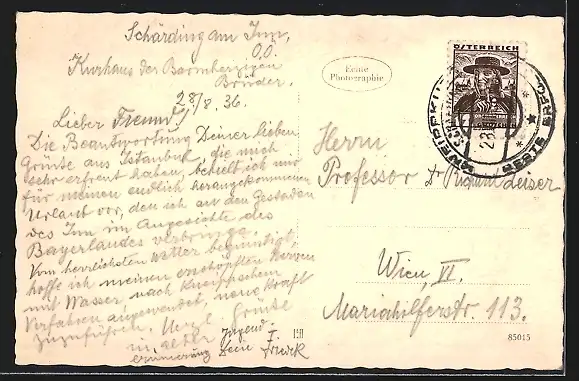 Schärding am Inn,
O.Ö.
Kurhaus der Barmherzigen
Brüder.
28/8. 36.
Lieber Freund!
Die Beantwortung Deiner lieben
Grüße aus Istanbul, die mich
sehr erfreut haben, behielt ich mir
für meinen endlich herangekommenen
Urlaub vor, den ich an den Gestaden
des Inn im Angesichte des
Bayerlandes verbringe.
Vom herrlichsten Wetter begünstigt,
hoffe ich meinen erschöpften Nerven
mit Wasser, nach Kneippschem
Verfahren angewendet, neue Kraft
zuzuführen. Herzl. Grüße
in alter Jugend-
erinnerung Dein
Echte
Photographie
ÖSTERREICH
Herrn
Professor Dr Richard
Wien, VI.
Mariahilferstr. 113.
85015